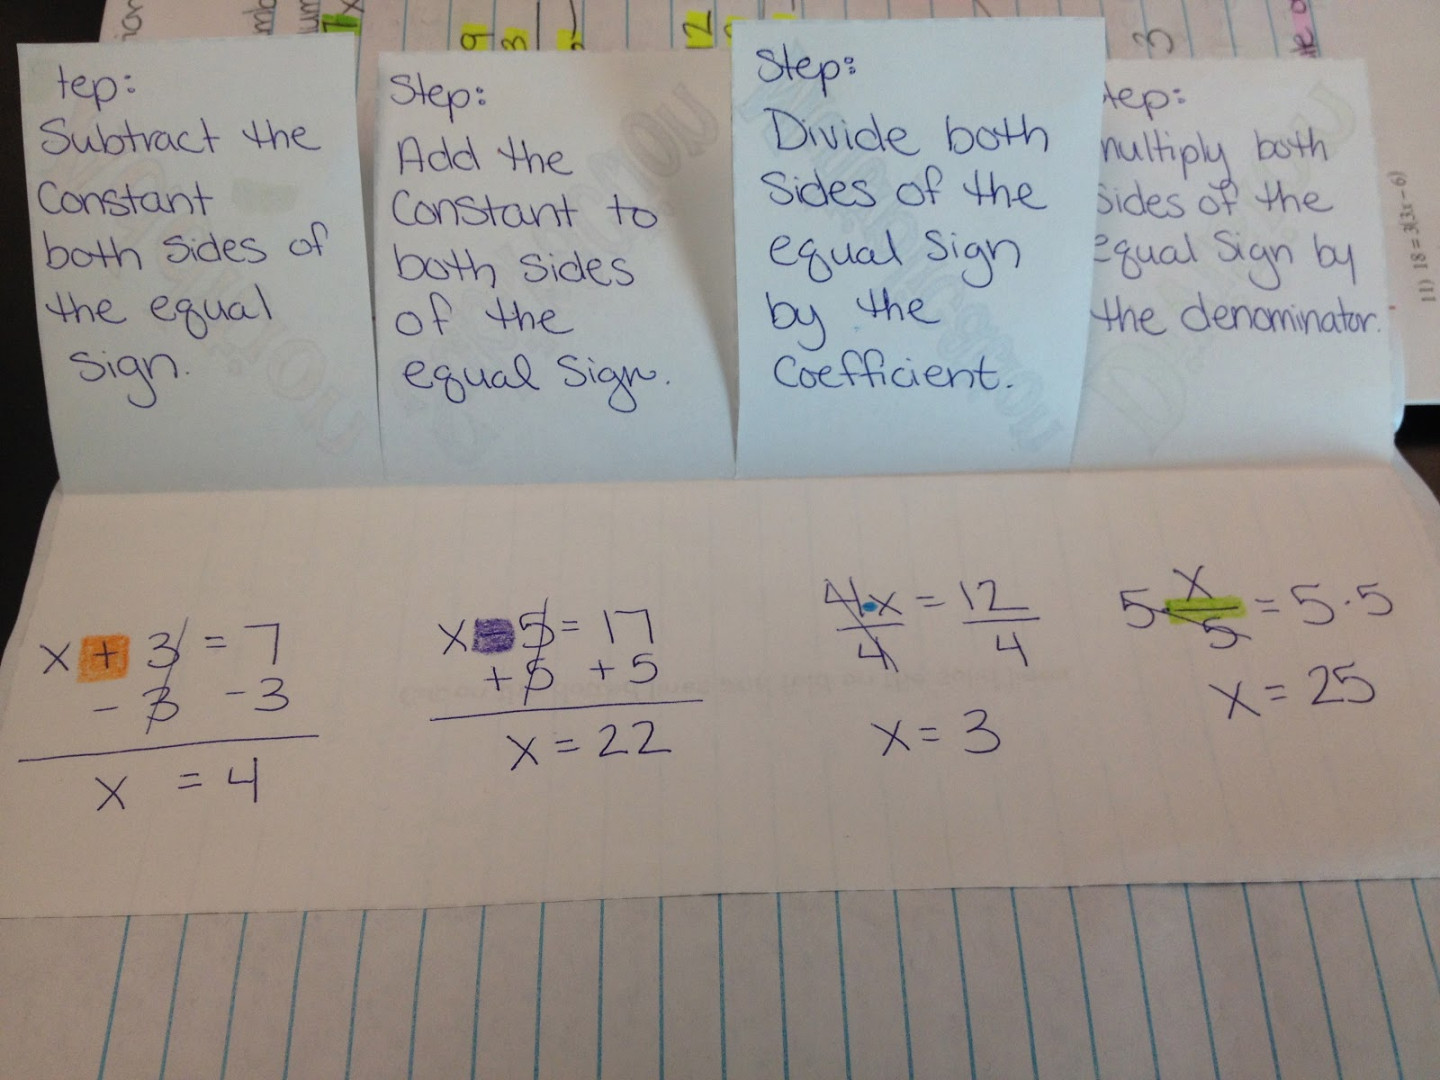 tep:
Subtract the
Constant
both sides of
the equal
sign.
Step:
Add the
Constant to
both sides
of the
equal sign.
Step:
Divide both
Sides of the
equal sign
by the
Coefficient.
tep:
multiply both
sides of the
equal sign by
the denominator.
x + 3 = 7
- 3 -3
x = 4
x - 5 = 17
+ 5 + 5
x = 22
4·x = 12
4 4
x = 3
5·x = 5·5
5
x = 25
11) 18 = 3(3x − 6)
9
3
12
3